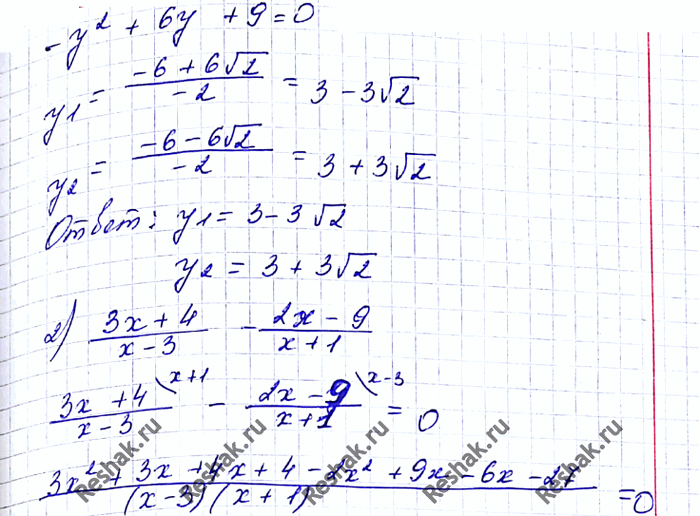 -y² + 6y + 9 = 0
y1 = (-6 + 6√2)/(-2) = 3 - 3√2
y2 = (-6 - 6√2)/(-2) = 3 + 3√2
Ответ: y1 = 3 - 3√2
y2 = 3 + 3√2
2) (3x + 4)/(x - 3) - (2x - 9)/(x + 1)
(3x + 4)/(x - 3) \x+1 - (2x - 9)/(x + 1) \x-3 = 0
(3x² + 3x + 4x + 4 - 2x² + 9x - 6x - 27)/((x - 3)(x + 1)) = 0
Reshak.ru Reshak.ru Reshak.ru Reshak.ru Reshak.ru